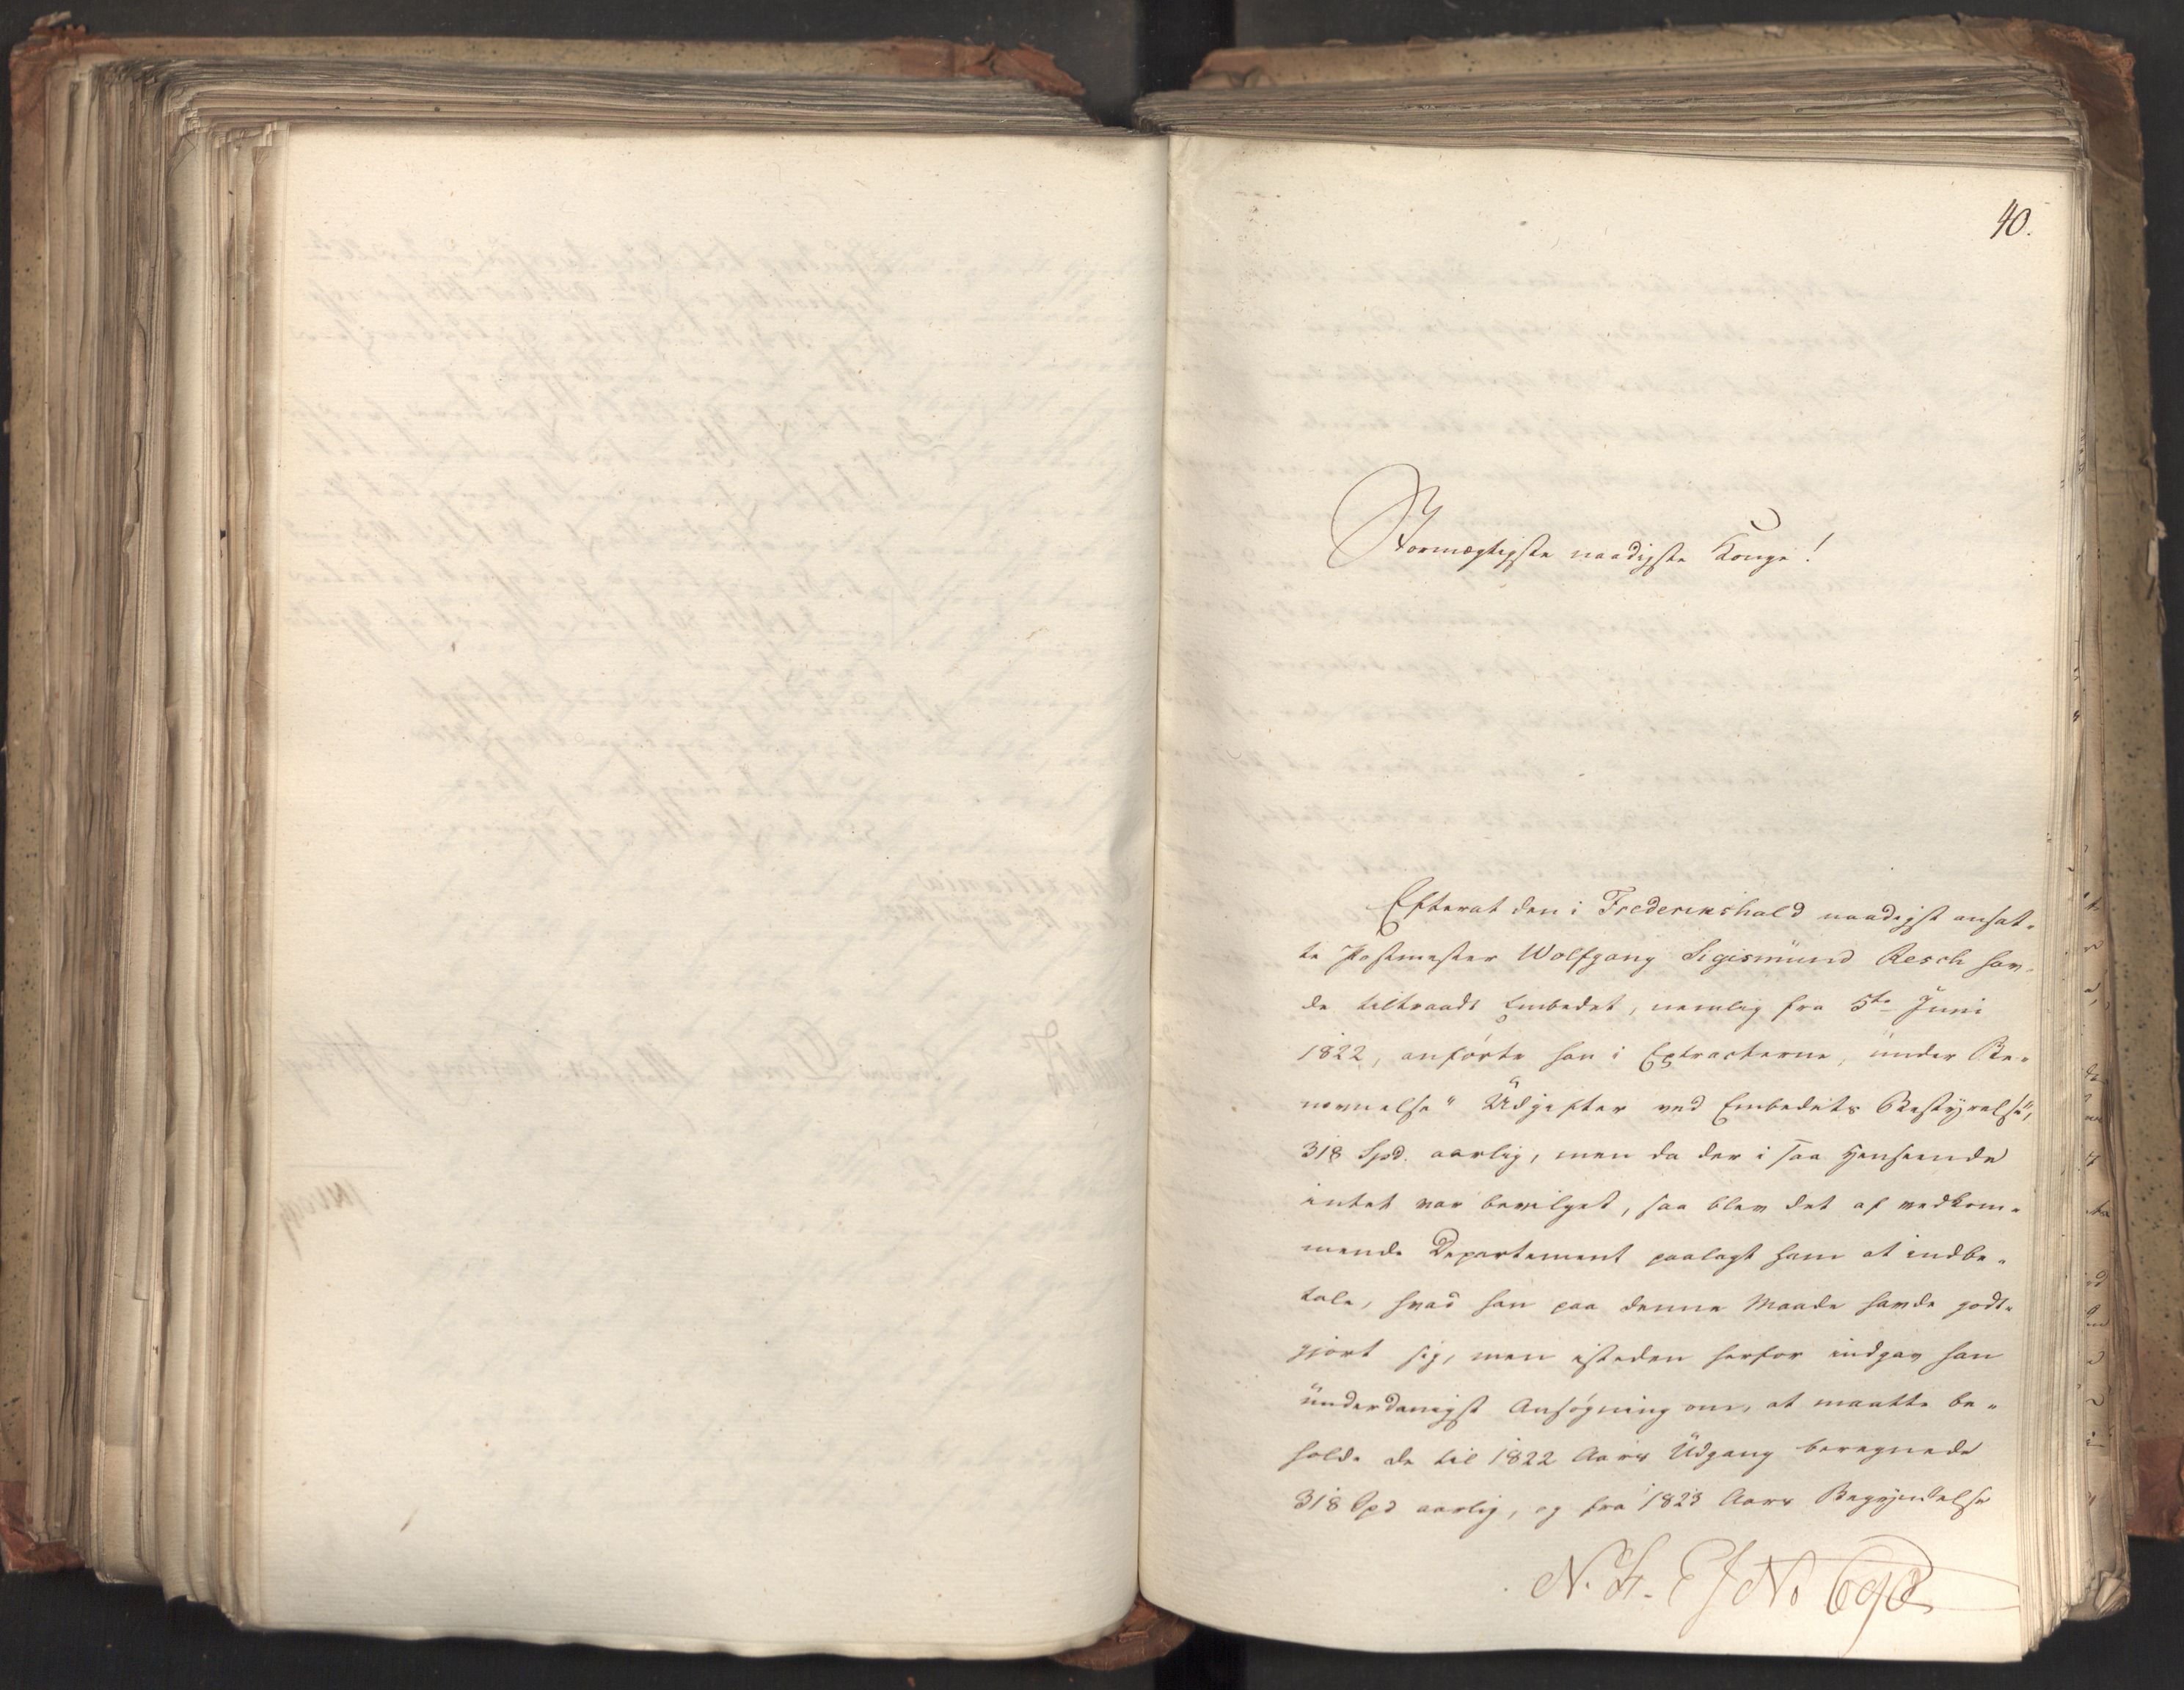 40.
Stormægtigste naadigste Konge!
Efterat den i Frederikshald naadigst ansat-
te Postmester Wolfgang Sigismund Resch hav-
de tiltraadt Embedet, nemlig fra 5te Juni
1822, anførte han i Extracterne, under Be-
nævnelse "Udgifter ved Embedets Bestyrelse",
318 Spd. aarlig, men da der i saa Henseende
intet var bevilget, saa blev det af vedkom-
mende Departement paalagt ham at indbe-
tale, hvad han paa denne Maade havde godt-
gjort sig, men isteden herfor indgav han
underdanigst Ansøgning om, at maatte be-
holde de til 1822 Aars Udgang beregnede
318 Spd aarlig, og fra 1823 Aars Begyndelse